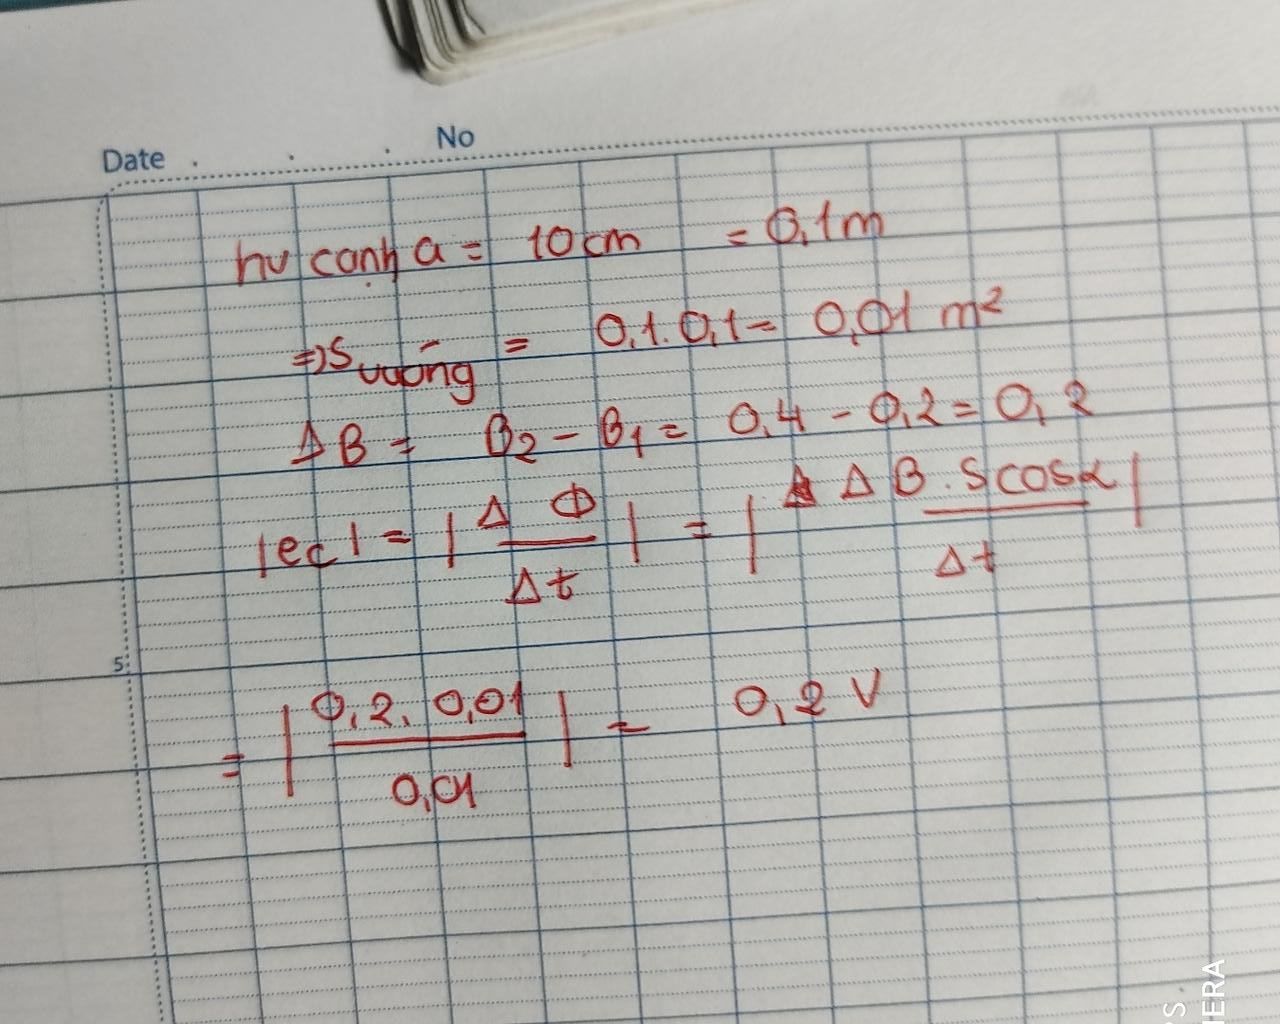 Date No
hv cạnh a = 10 cm = 0,1m
=> S vuông = 0,1. 0,1 = 0,01 m²
ΔB = B₂ - B₁ = 0,4 - 0,2 = 0,2
|ec| = | ΔΦ / Δt | = | ΔB . S cosα / Δt |
5
= | 0,2. 0,01 / 0,01 | = 0,2 V